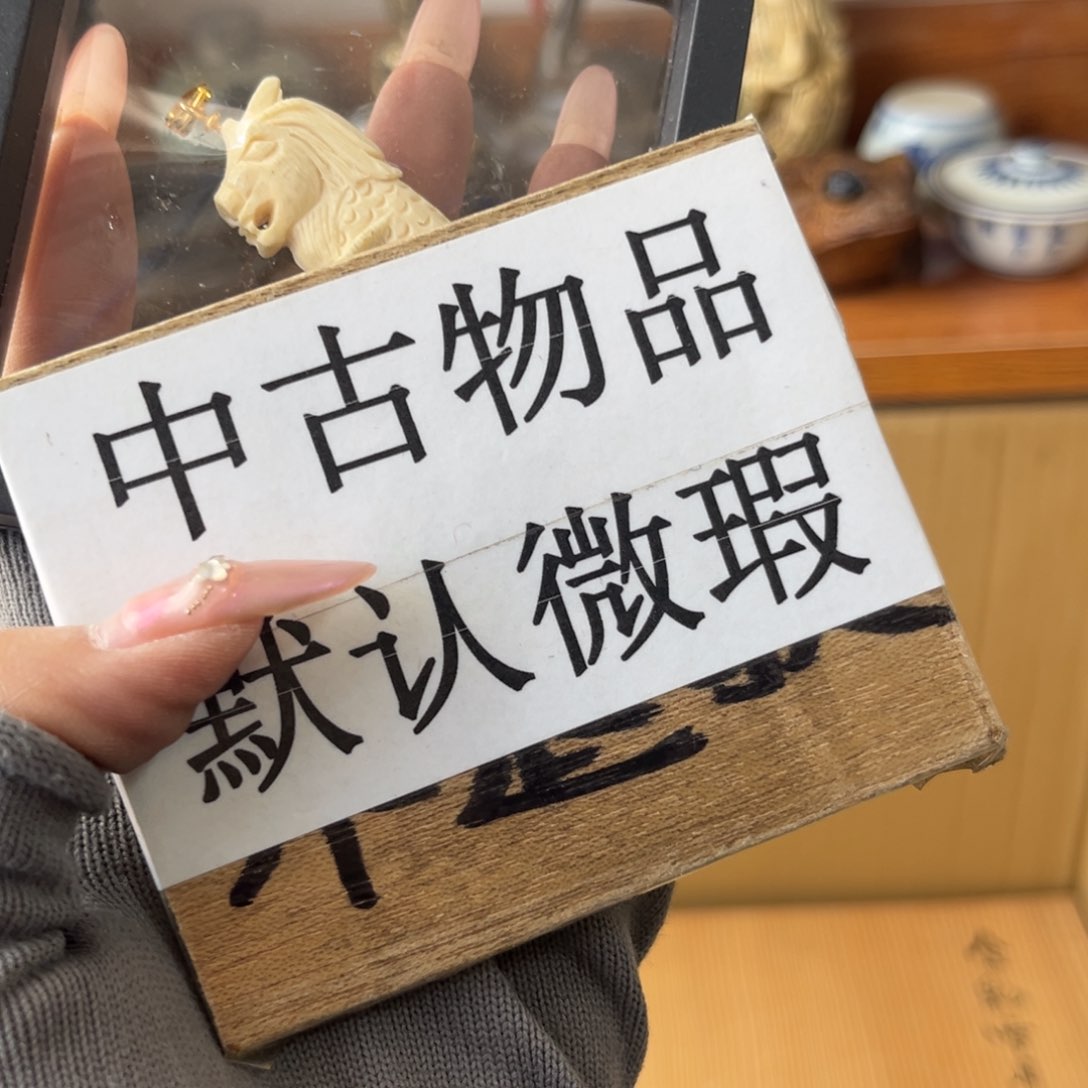 中古物品
默认微瑕